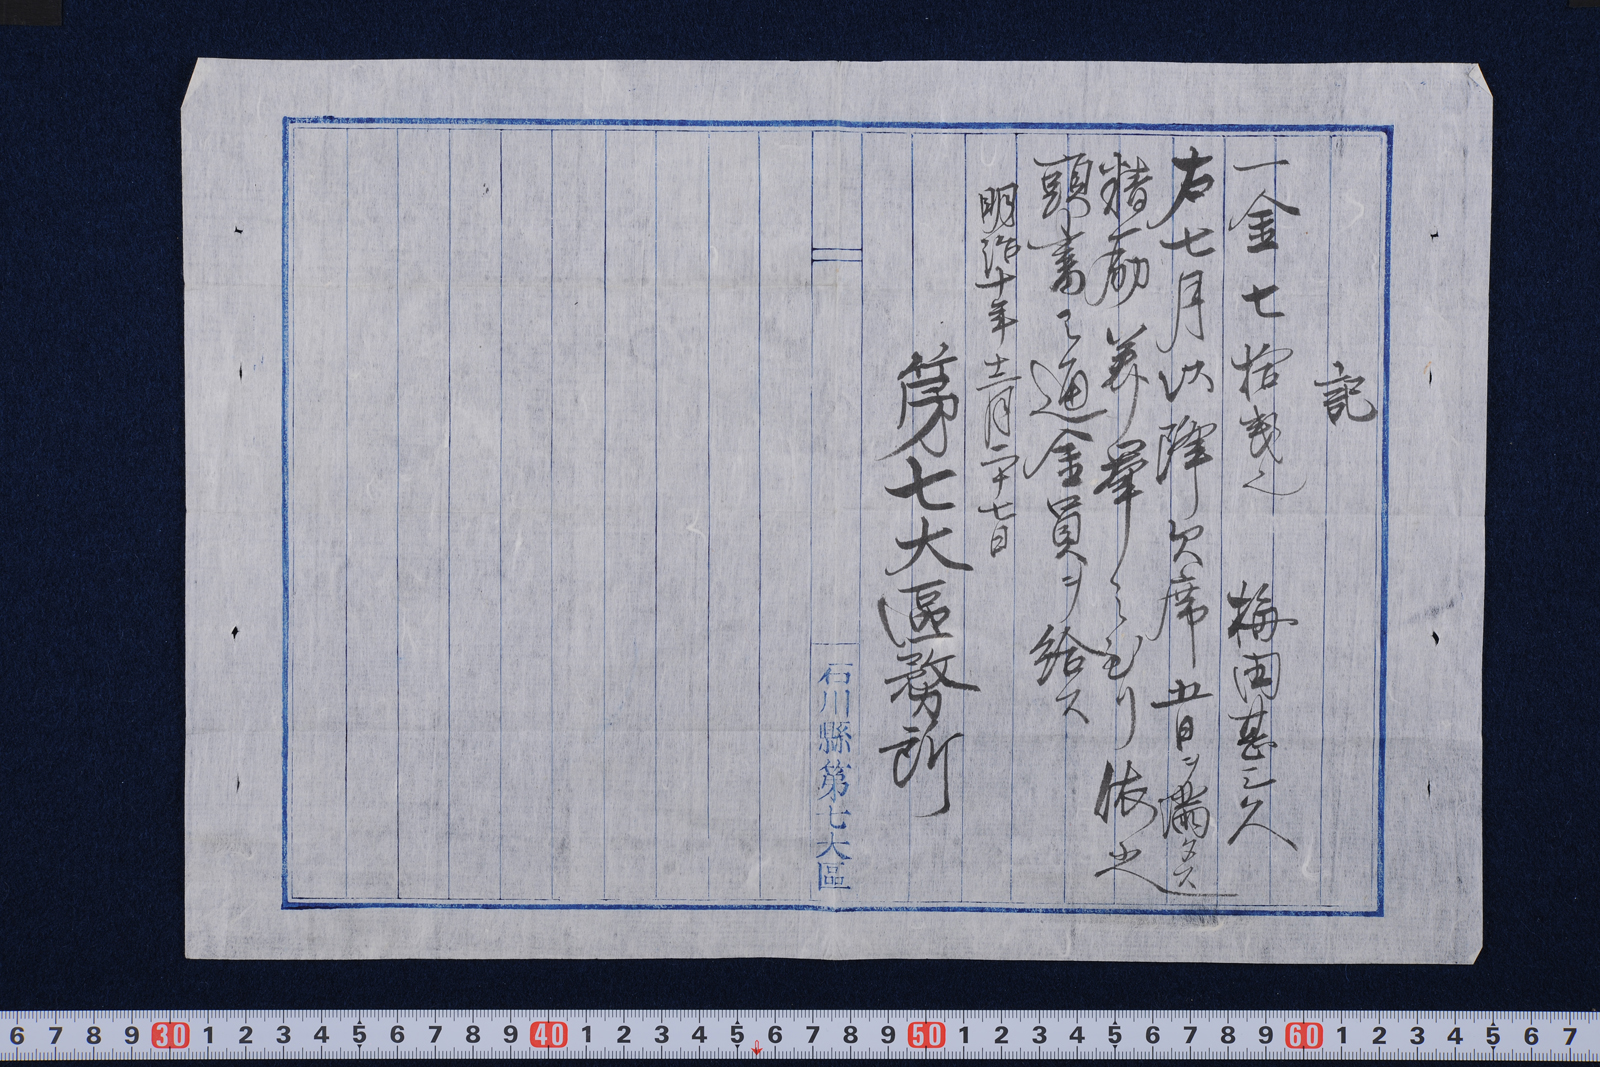 記
一金七拾銭也 梅田甚三久
右七月以降欠席五日ニ満タス
精勤 群 依之
頭書之通金員ヲ給ス
明治十年十二月二十七日
第七大區務所
石川縣第七大區
6 7 8 9 30 1 2 3 4 5 6 7 8 9 40 1 2 3 4 5 6 7 8 9 50 1 2 3 4 5 6 7 8 9 60 1 2 3 4 5 6 7